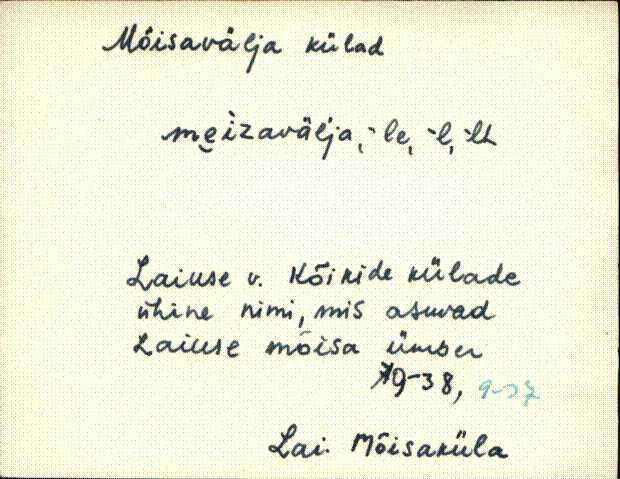 Mõisavälja külad
mẹìzavälja, -le, -l, -lt
Laiuse v. Kõikide külade
ühine nimi, mis asuvad
Laiuse mõisa ümber
Lai. Mõisaküla